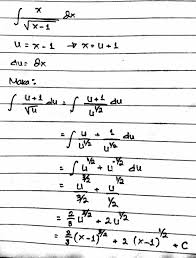 ∫ x/√(x-1) dx
u = x-1 → x = u+1
du = dx
Maka:
∫ (u+1)/√u du = ∫ (u+1)/u^(1/2) du
= ∫ u/u^(1/2) + 1/u^(1/2) du
= ∫ u^(1/2) + u^(-1/2) du
= u^(3/2)/(3/2) + u^(1/2)/(1/2)
= 2/3 u^(3/2) + 2u^(1/2)
= 2/3 (x-1)^(3/2) + 2 (x-1)^(1/2) + C